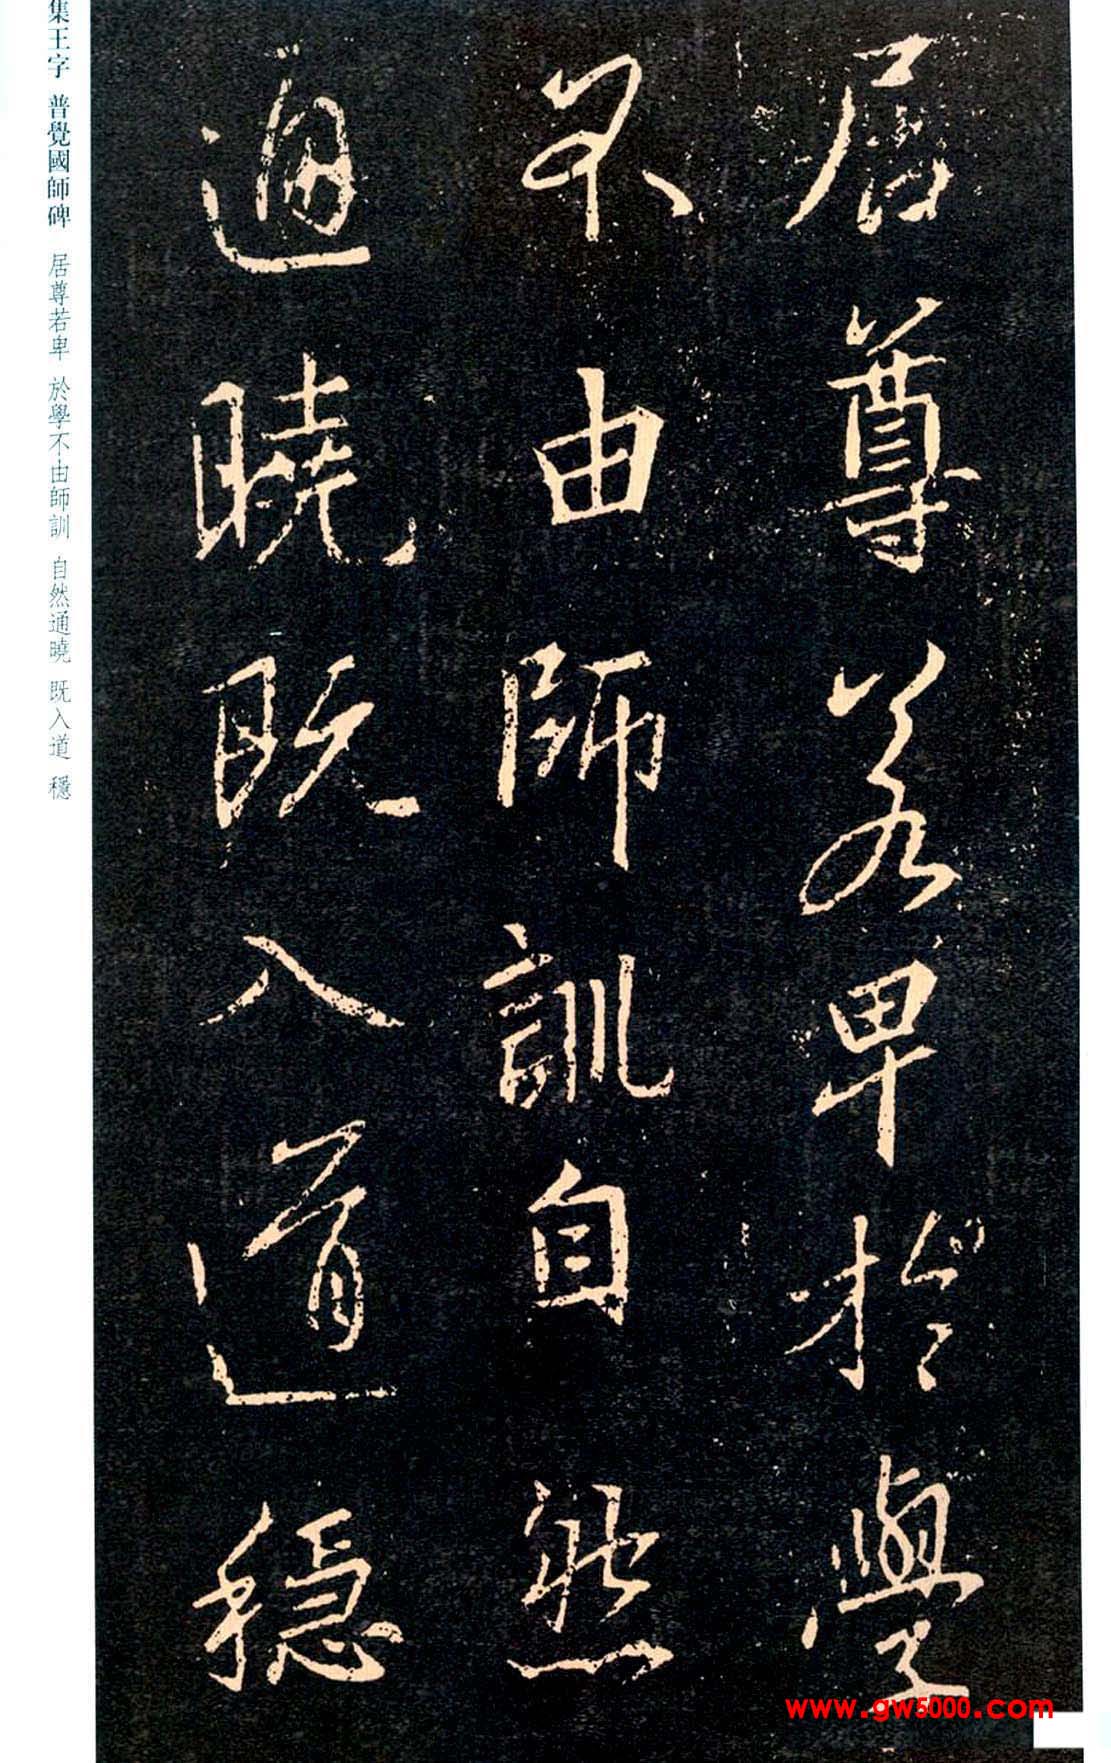 居尊若卑於學
不由師訓自然
通曉既入道穩
集王字 普覺國師碑 居尊若卑 於學不由師訓 自然通曉 既入道 穩
www.gw5000.com